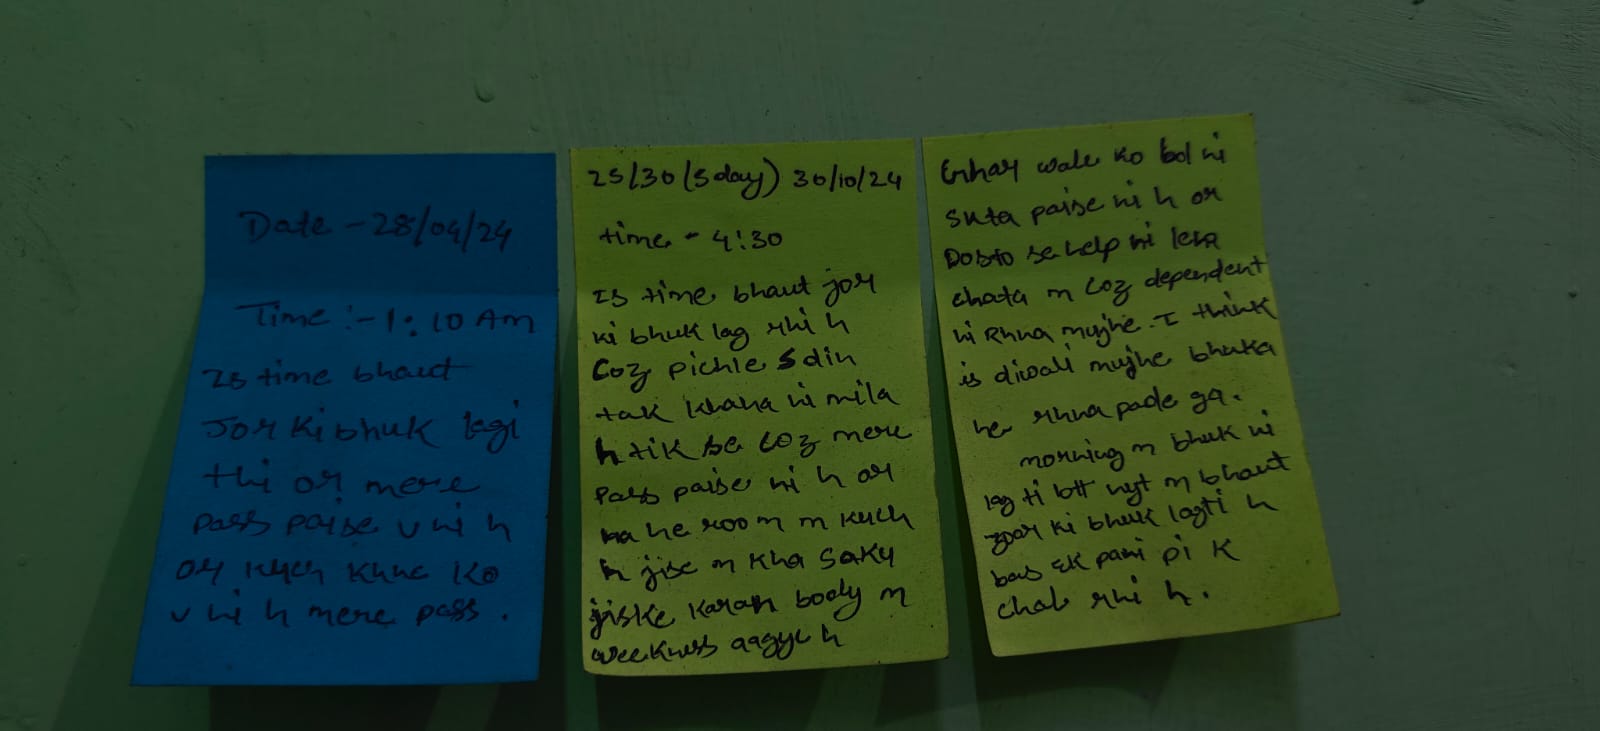 Date - 28/04/24
Time :- 1:10 Am
Is time bhaut
Jor ki bhuk lagi
thi or mere
pass paise v ni h
or kuch khne ko
v ni h mere pass .
25/30 (5 day) 30/10/24
time - 4:30
Is time bhaut jor
ki bhuk lag rhi h
Coz pichle 5 din
tak khana ni mila
h tik se coz mere
pass paise ni h or
na he room m kuch
h jise m kha saku
jiske karan body m
weekness aagye h
Ghar wale ko bol ni
skta paise ni h or
Dosto se help ni lena
chata m coz dependent
ni Rhna mujhe. I think
is diwali mujhe bhuka
he rhna pade ga.
morning m bhuk ni
lag ti btt nyt m bhaut
zoar ki bhuk lagti h
bas Ek pani pi k
chal rhi h.